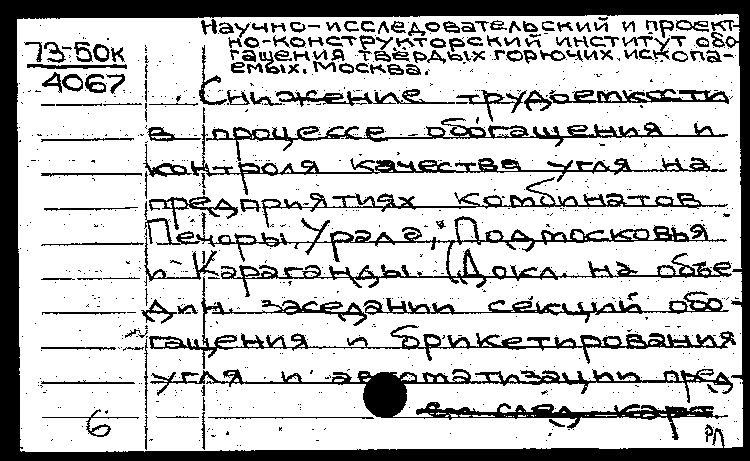 Научно-исследовательский и проект-
но-конструкторский институт обо-
гащения твёрдых горючих ископа-
емых. Москва.
73-50к
4067
Снижение трудоемкости
в процессе обогащения и
контроля качества угля на
предприятиях комбинатов
Печоры, Урала, Подмосковья
и Караганды. (Докл. на объе-
дин. заседании секций обо-
гащения и брикетирования
угля и автоматизации пред-
см след. карт
6
РЛ